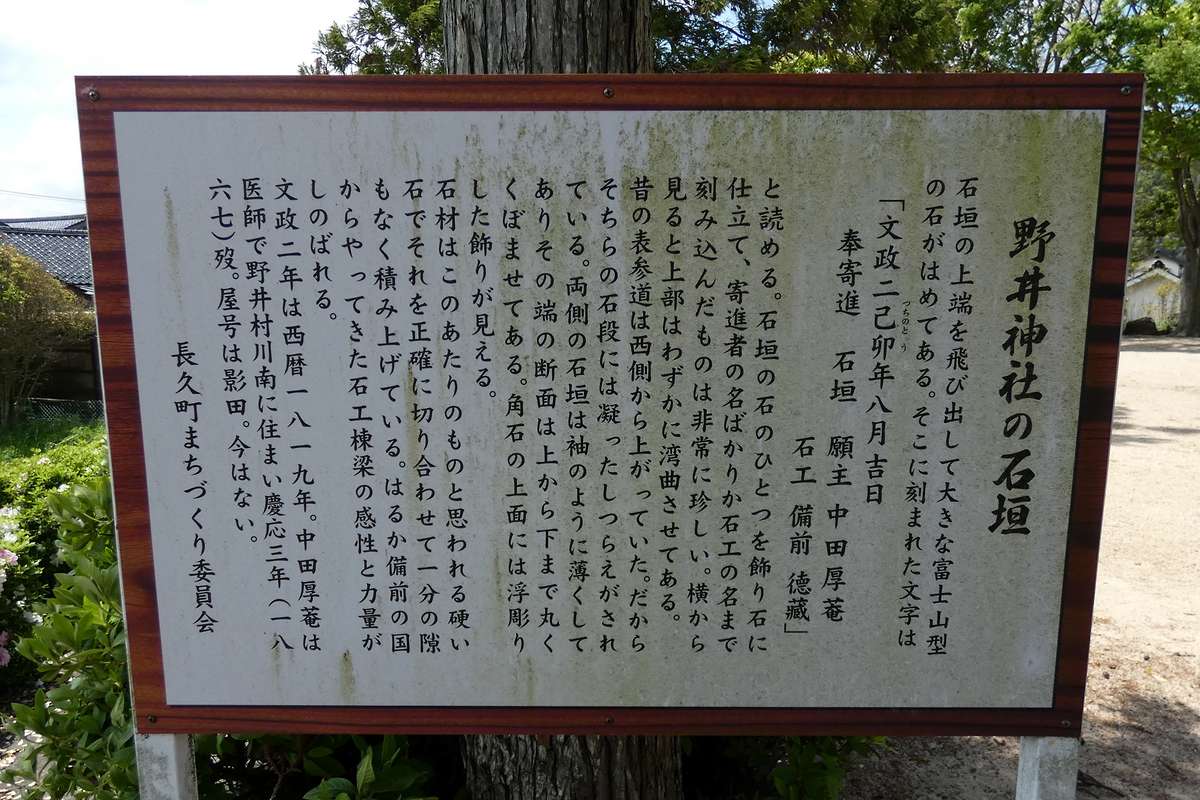 野井神社の石垣
石垣の上端を飛び出して大きな富士山型
の石がはめてある。そこに刻まれた文字は
「文政二己卯年八月吉日
つちのとう
奉寄進 石垣 願主 中田厚菴
石工 備前 徳藏」
と読める。石垣の石のひとつを飾り石に
仕立て、寄進者の名ばかりか石工の名まで
刻み込んだものは非常に珍しい。横から
見ると上部はわずかに湾曲させてある。
昔の表参道は西側から上がっていた。だから
そちらの石段には凝ったしつらえがされ
ている。両側の石垣は袖のように薄くして
ありその端の断面は上から下まで丸く
くぼませてある。角石の上面には浮彫り
した飾りが見える。
石材はこのあたりのものと思われる硬い
石でそれを正確に切り合わせて一分の隙
もなく積み上げている。はるか備前の国
からやってきた石工棟梁の感性と力量が
しのばれる。
文政二年は西暦一八一九年。中田厚菴は
医師で野井村川南に住まい慶応三年（一八
六七）歿。屋号は影田。今はない。
長久町まちづくり委員会